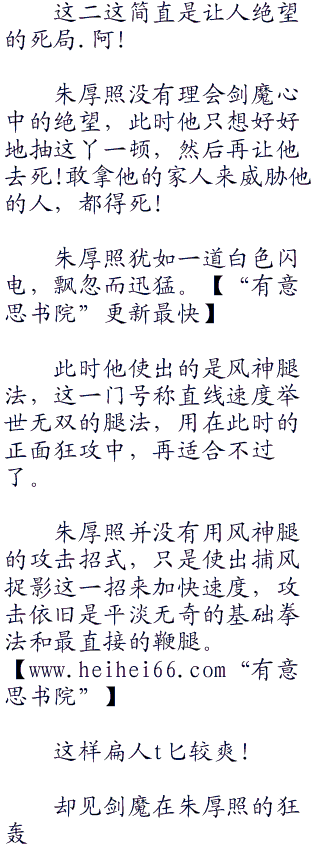 这二这简直是让人绝望
的死局.阿!
朱厚照没有理会剑魔心
中的绝望，此时他只想好好
地抽这丫一顿，然后再让他
去死!敢拿他的家人来威胁他
的人，都得死!
朱厚照犹如一道白色闪
电，飘忽而迅猛。【“有意
思书院”更新最快】
此时他使出的是风神腿
法，这一门号称直线速度举
世无双的腿法，用在此时的
正面狂攻中，再适合不过
了。
朱厚照并没有用风神腿
的攻击招式，只是使出捕风
捉影这一招来加快速度，攻
击依旧是平淡无奇的基础拳
法和最直接的鞭腿。
【www.heihei66.com“有意
思书院”】
这样扁人t匕较爽!
却见剑魔在朱厚照的狂
轰